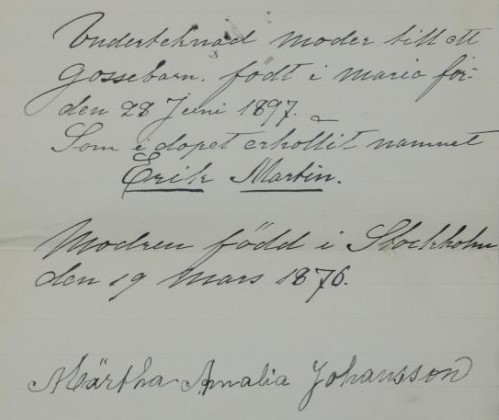 Undertecknad moder till ett
Gossebarn. född i Maria för-
den 28 Juni 1897.
Som i dopet erhållit namnet
Erik Martin.
Modren född i Stockholm
den 19 Mars 1876.
Märtha Amalia Johansson